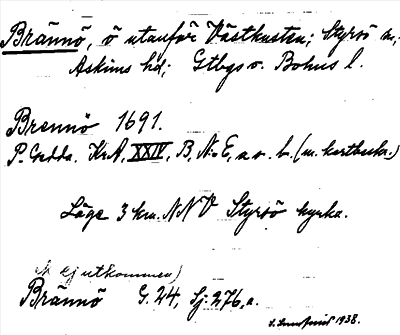 Brännö, ö utanför Västkusten; Styrsö sn,
Askims hd; Gtbgs o. Bohus l.
Brennö 1691.
P. Gedda. Kr.A, XXIV, B. No E, a o. b. (m. kartbeskr.)
Läge 3 km. NNV Styrsö kyrka.
(ej utkommen)
Brännö G. 24, Sj: 276, a.
1938.